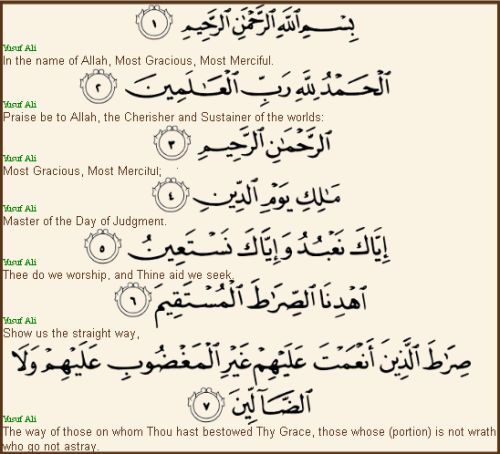 بِسْمِ ٱللَّهِ ٱلرَّحْمَٰنِ ٱلرَّحِيمِ ١
Yusuf Ali
In the name of Allah, Most Gracious, Most Merciful.
ٱلْحَمْدُ لِلَّهِ رَبِّ ٱلْعَٰلَمِينَ ٢
Yusuf Ali
Praise be to Allah, the Cherisher and Sustainer of the worlds:
ٱلرَّحْمَٰنِ ٱلرَّحِيمِ ٣
Yusuf Ali
Most Gracious, Most Merciful;
مَٰلِكِ يَوْمِ ٱلدِّينِ ٤
Yusuf Ali
Master of the Day of Judgment.
إِيَّاكَ نَعْبُدُ وَإِيَّاكَ نَسْتَعِينُ ٥
Yusuf Ali
Thee do we worship, and Thine aid we seek.
ٱهْدِنَا ٱلصِّرَٰطَ ٱلْمُسْتَقِيمَ ٦
Yusuf Ali
Show us the straight way,
صِرَٰطَ ٱلَّذِينَ أَنْعَمْتَ عَلَيْهِمْ غَيْرِ ٱلْمَغْضُوبِ عَلَيْهِمْ وَلَا
ٱلضَّآلِّينَ ٧
Yusuf Ali
The way of those on whom Thou hast bestowed Thy Grace, those whose (portion) is not wrath
who go not astray.